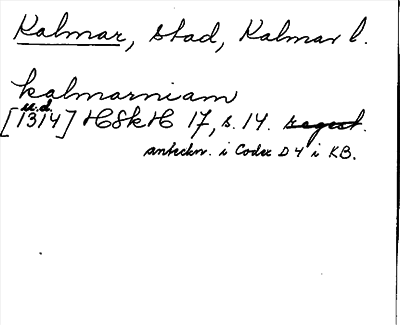 Kalmar, stad, Kalmar l.
kalmarniam
u.d.
[1314] HSkH 17, s. 14. regest.
anteckn. i Codex D 4 i KB.